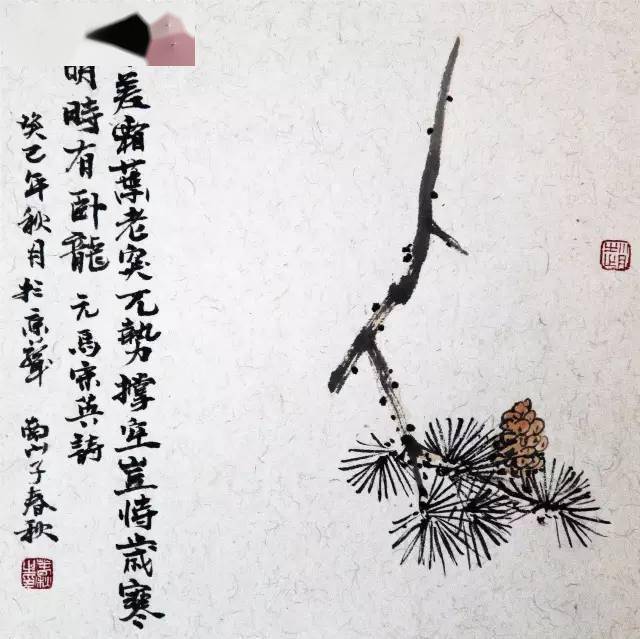 差霜葉老突兀勢撑空豈恃歲寒
明時有卧龍 元馬宗英詩
癸巳年秋月於京華 南山子春秋